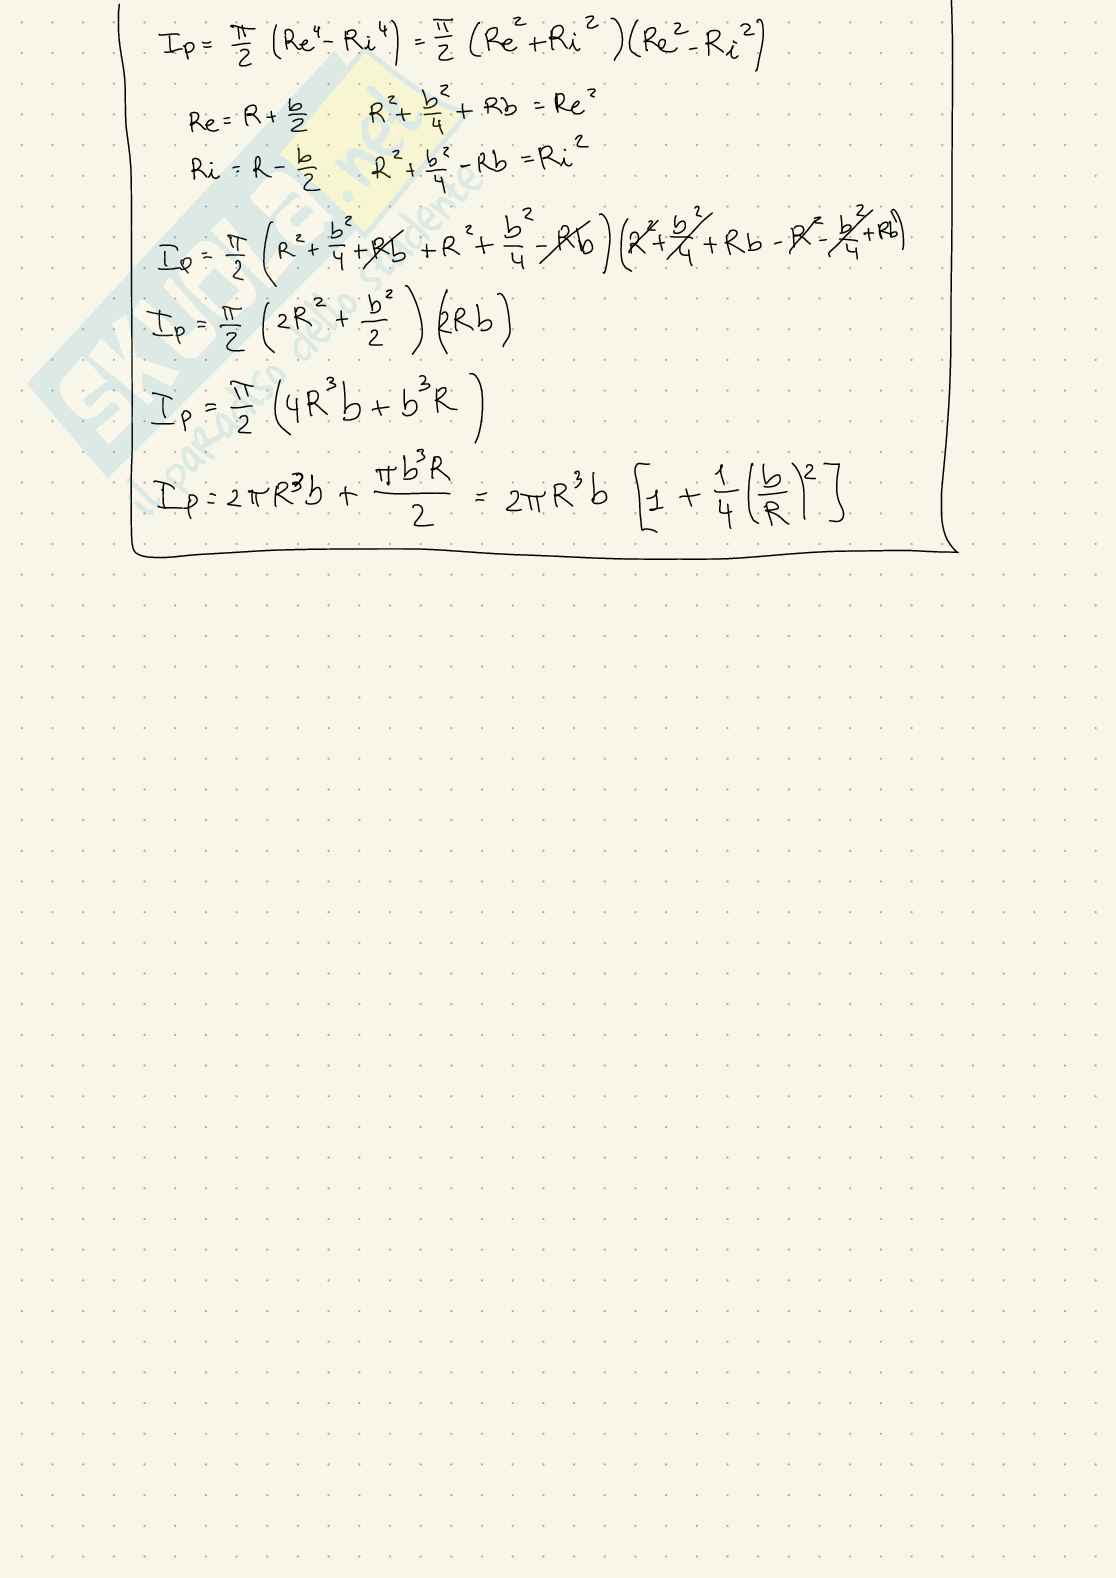 Ip = π/2 (Re⁴ - Ri⁴) = π/2 (Re² + Ri²)(Re² - Ri²)
Re = R + b/2    R² + b²/4 + Rb = Re²
Ri = R - b/2    R² + b²/4 - Rb = Ri²
Ip = π/2 (R² + b²/4 + Rb + R² + b²/4 - Rb)(R² + b²/4 + Rb - R² - b²/4 + Rb)
Ip = π/2 (2R² + b²/2)(2Rb)
Ip = π/2 (4R³b + b³R)
Ip = 2πR³b + πb³R/2 = 2πR³b [1 + 1/4 (b/R)²]
SKUOLA.net
il paradiso dello studente